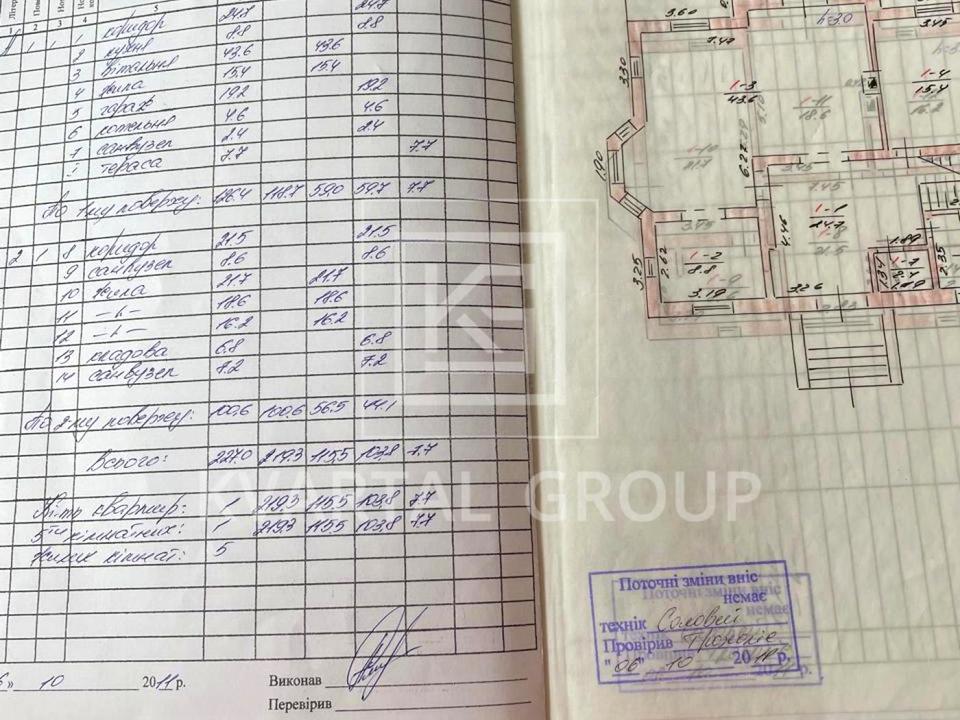 1 2 3 4 5
1 1 1 коридор 24.7 24.7
2 кухня 8.8 8.8
3 вітальня 43.6 43.6
4 жила 15.4 15.4
5 гараж 19.2 19.2
6 котельня 4.6 4.6
7 санвузел 2.4 2.4
І тераса 7.7 7.7
По 1му поверху: 126.4 118.7 59.0 59.7 7.7
2 1 8 коридор 21.5 21.5
9 санвузел 8.6 8.6
10 жила 21.7 21.7
11 –"– 18.6 18.6
12 –"– 16.2 16.2
13 кладова 6.8 6.8
14 санвузел 7.2 7.2
По 2му поверху: 100.6 100.6 56.5 44.1
Всього: 227.0 219.3 115.5 103.8 7.7
К-ть квартир: 1 219.3 115.5 103.8 7.7
5ти кімнатних: 1 219.3 115.5 103.8 7.7
Жилих кімнат: 5
6 » 10 2011 р.
Виконав
Перевірив
KVARTAL GROUP
3.60
7.40
4.30
3.45
3.30
1-3
43.6
1-11
18.6
1-4
15.4
16.2
5.10
1-10
21.7
6.22
1.90
3.45
7.45
3.75
1-1
24.7
21.5
4.46
3.25
2.62
1-2
8.8
1-9
3.19
3.26
1.89
1.34
2.35
Поточні зміни вніс
немає
технік Соловей
Провірив
"06" 10 2011 р.